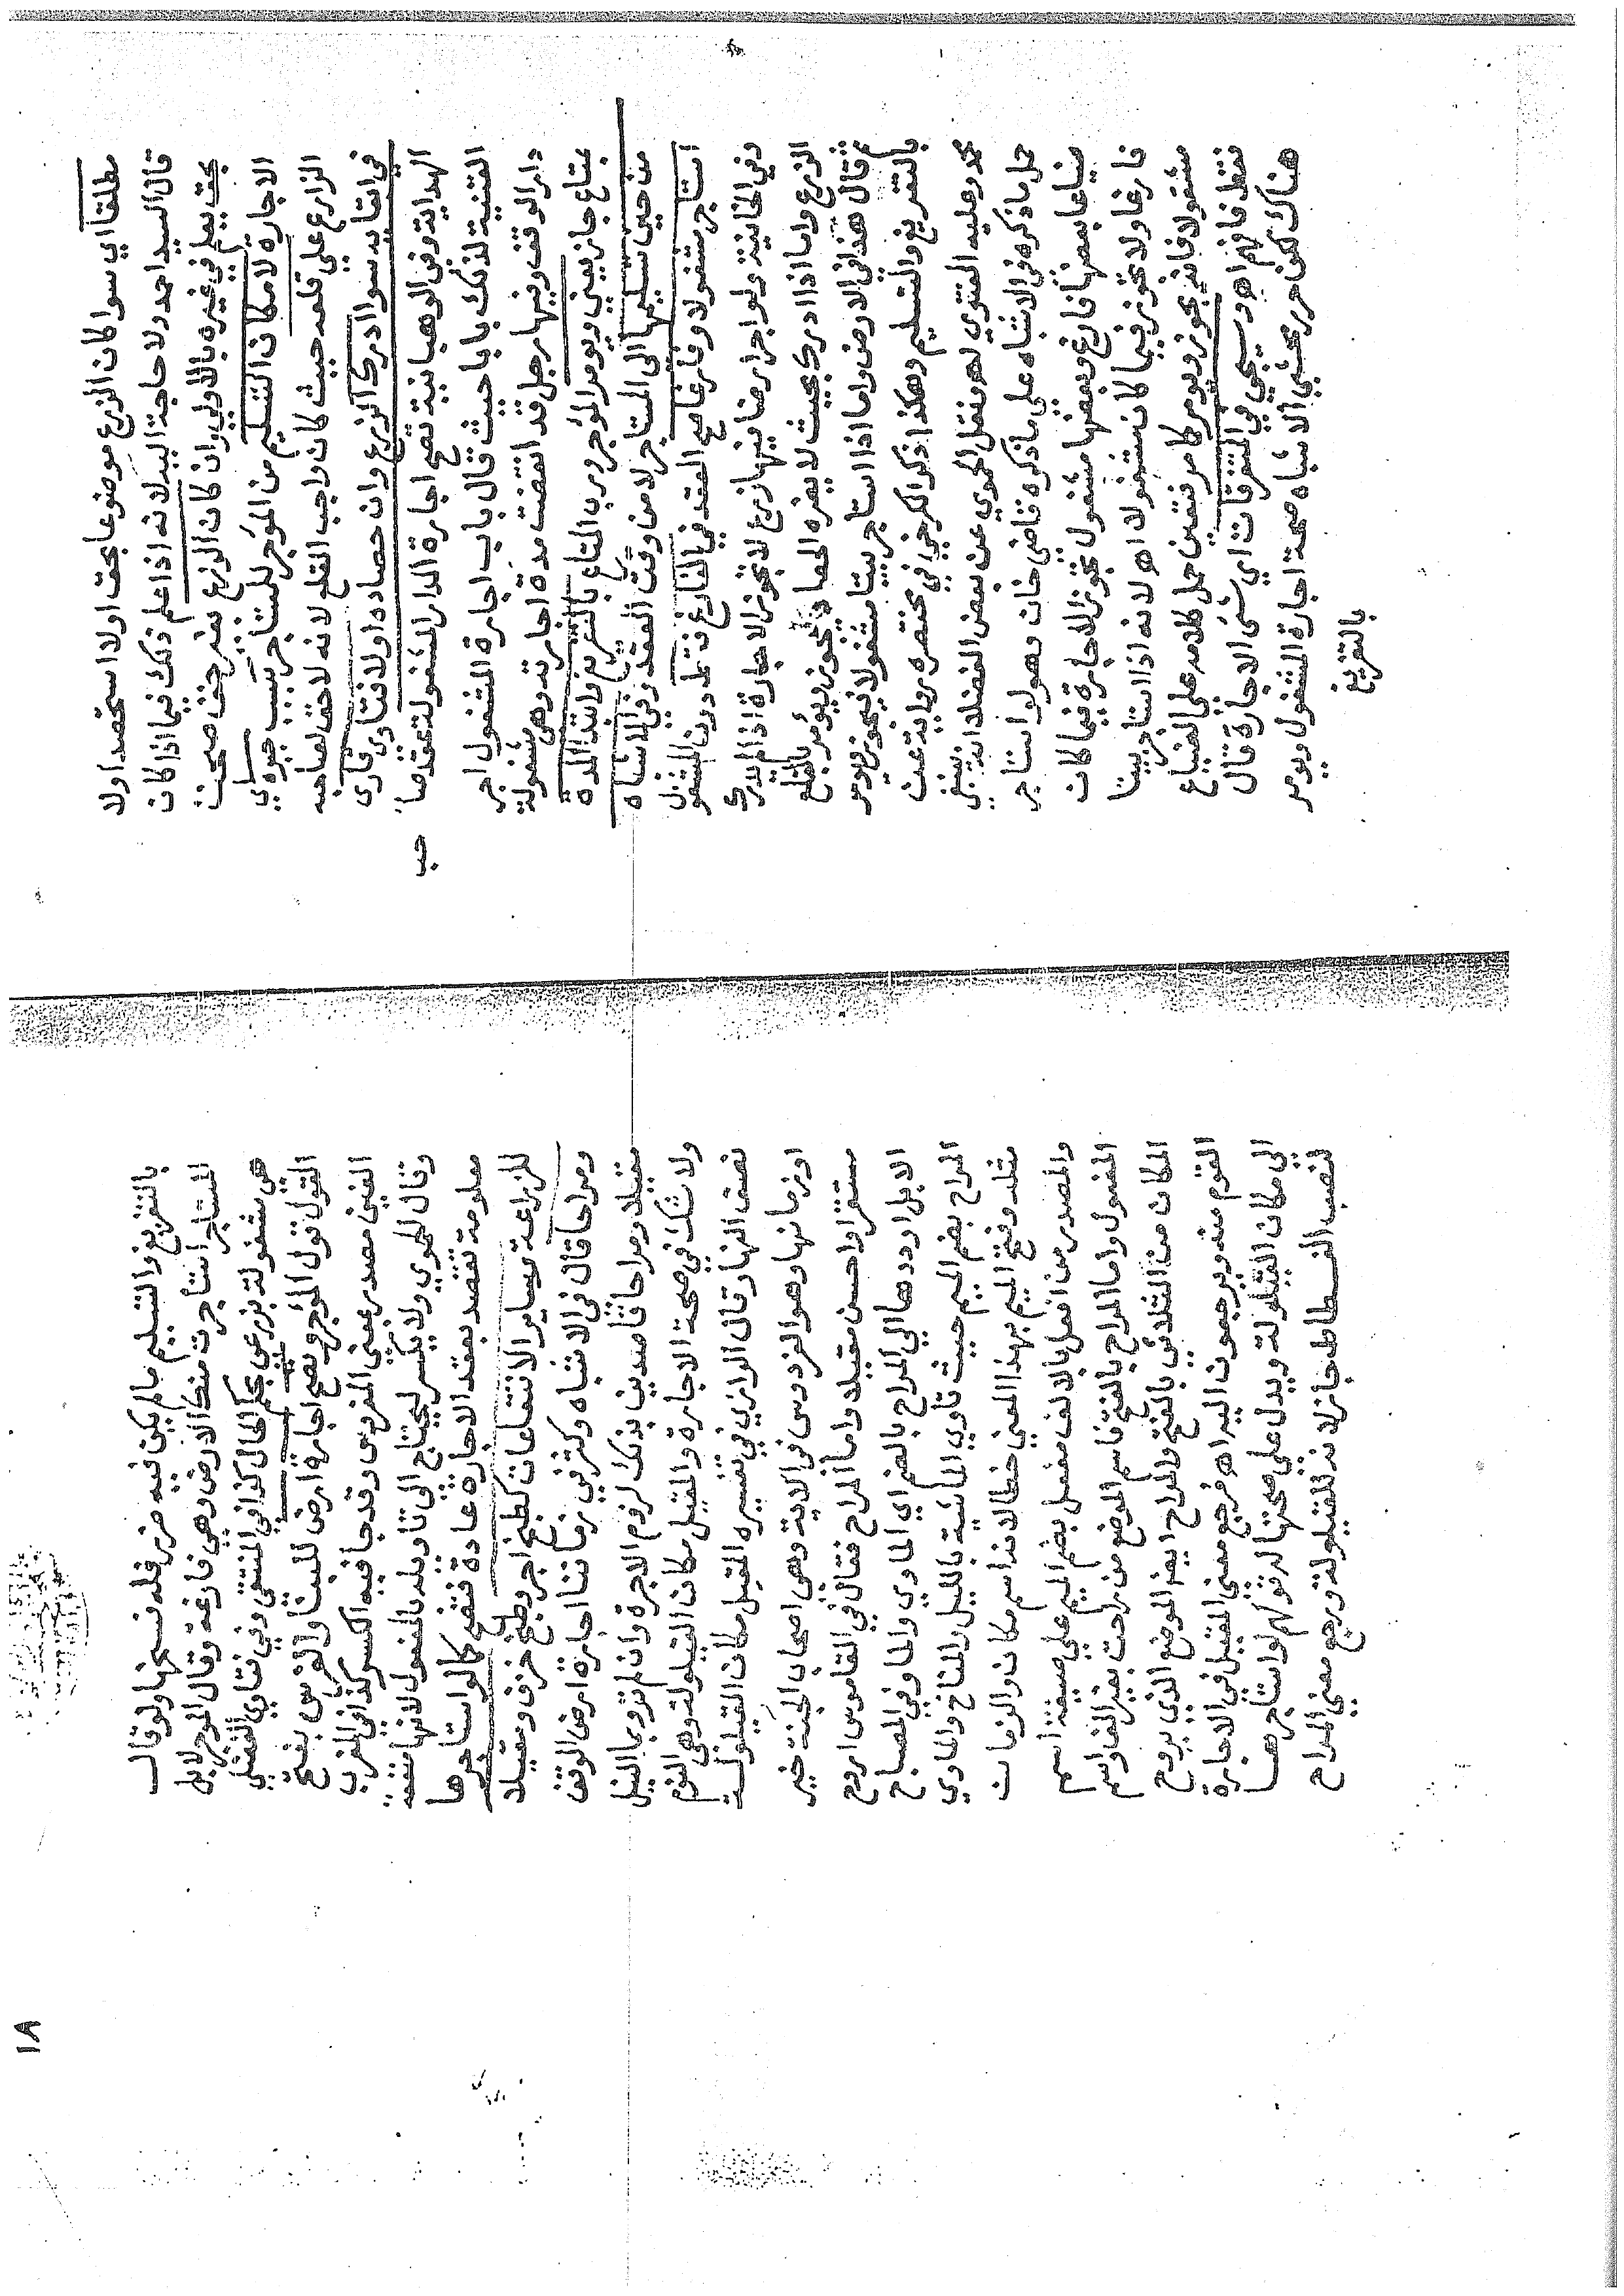 مطلقا اي سوا كان الزرع موضوعا بحق اولا استحصد اولا
قال السيد احمد ولا حاجة اليه لانه اذا علم ذلك فيما اذا كان
بحق يعلم في غيره بالاولي وان كان الزرع بغير حق صحت
الاجارة لامكان التسليم من المؤجر للمستاجر بسبب جبره اي
الزارع علي قلعه حيث كان واجب القلع لانه لا حق لصاحبه
في ابقايه سوا ادرك الزرع وان حصاده اولا فتاوي قاري
الهداية وفي الوهبانية تصح اجارة الدار المشغولة عقد صاحب
القنية لذلك بابا حيث قال باب اجارة المشغول اجر
دار الوقف وفيها رجل قد انقضت مدة اجارته وهي مشغولة
بمتاع جاز يعني ويومر المؤجر ورب المتاع بالتفريغ وابتدا المدة
من حين تسليمها الي المستاجر لا من وقت العقد وفي الاشباه
استاجر مشغولا وفارغا صح العقد في الفارغ فقط دون المشغول
وفي الخانية ولو اجر ارضا فيها زرع لا تجوز الاجارة اذا لم يدرك
الزرع واما اذا ادرك بحيث لا يضره الحصاد يجوز ويؤمر بالقلع
ثم قال هذا في الارض واما اذا استاجر بيتا مشغولا فيجوز ويومر
بالتفريغ والتسليم وهكذا ذكر الكرخي في مختصره رواية عن
محمد وعليه الفتوي لهو نقل الحموي عن بعض الفضلا انه ينبغي
حمل ما ذكره في الاشباه علي ما ذكره قاضي خان وهو لو استاجر
ضياعا بعضها فارغ وبعضها مشغول تجوز الاجارة فيما كان
فارغا ولا تجوز فيما كان مشغولا اهـ لانه اذا استاجر بيتا
مشغولا فانه يجوز ويومر كما مر فتعين حمل كلامه علي الضياع
فقط فافهم اهـ وسيجي في المتفرقات اي شتي الاجارة قال
هناك لكن حرر محشي الاشباه صحة اجارة المشغول ويومر
بالتفريغ
بالتفريغ والتسليم ما لم يكن فيه ضرر فله فسخها ولو قال
المستاجر استاجرت منك الارض وهي فارغة وقال الموجر لا بل
هي مشغولة بزرعي يحكم الحال كذا في المنتقي وفي فتاوي الفضلي
القول قول المؤجر وتصح اجارة ارض للبنا والغرس بفتح
الغين مصدر بمعني المغروس وقد جا فيه الكسر كذا في المغرب
وقال الحموي ولا يكسر ليحتاج الي تاويله بالمفعول لانها منفعة
معلومة تقصد بعقد الاجارة عادة فتصح كما لو استاجرها
للزراعة وساير الانتفاعات كطبخ اجر وطبخ خزف ومقيلا
ومراحا قال في الاشباه وكثر في زماننا اجارة ارض الوقف
مقيلا ومراحا قاصدين بذلك لزوم الاجرة وان لم ترو بما النيل
ولا شك في صحة الاجارة والمقيل مكان القيلولة وهي النوم
نصف النهار قال الرازي في تفسيره المقيل مكان القيلولة
او زمانها وهو الفردوس في الاية وهي اصحاب الجنة خير
مستقرا واحسن مقيلا واما المراح فقال في القاموس اروح
الابل اي ردها الي المراح بالضم اي الماوي والما وفي المصباح
المراح بضم الميم حيث تاوي الماشية بالليل والمناخ والماوي
مثله وفتح الميم بهذا المعني خطا لانه اسم مكان والزمان
والمصدر من افعل بالالف مفعل بضم الميم علي صيغة اسم
المفعول واما المراح بالفتح فاسم الموضع من راحت بغير الف واسم
المكان من الثلاثي بالفتح والمراح ايضا الموضع الذي يروح
القوم منه ويرجعون اليه اهـ فرجع معني المقيل في الاجارة
الي مكان القيلولة ويدل علي صحتها له قولهم لو استاجرها
لنصب الفسطاط جاز لانه للقيلولة ورجع معني المراح
١٨